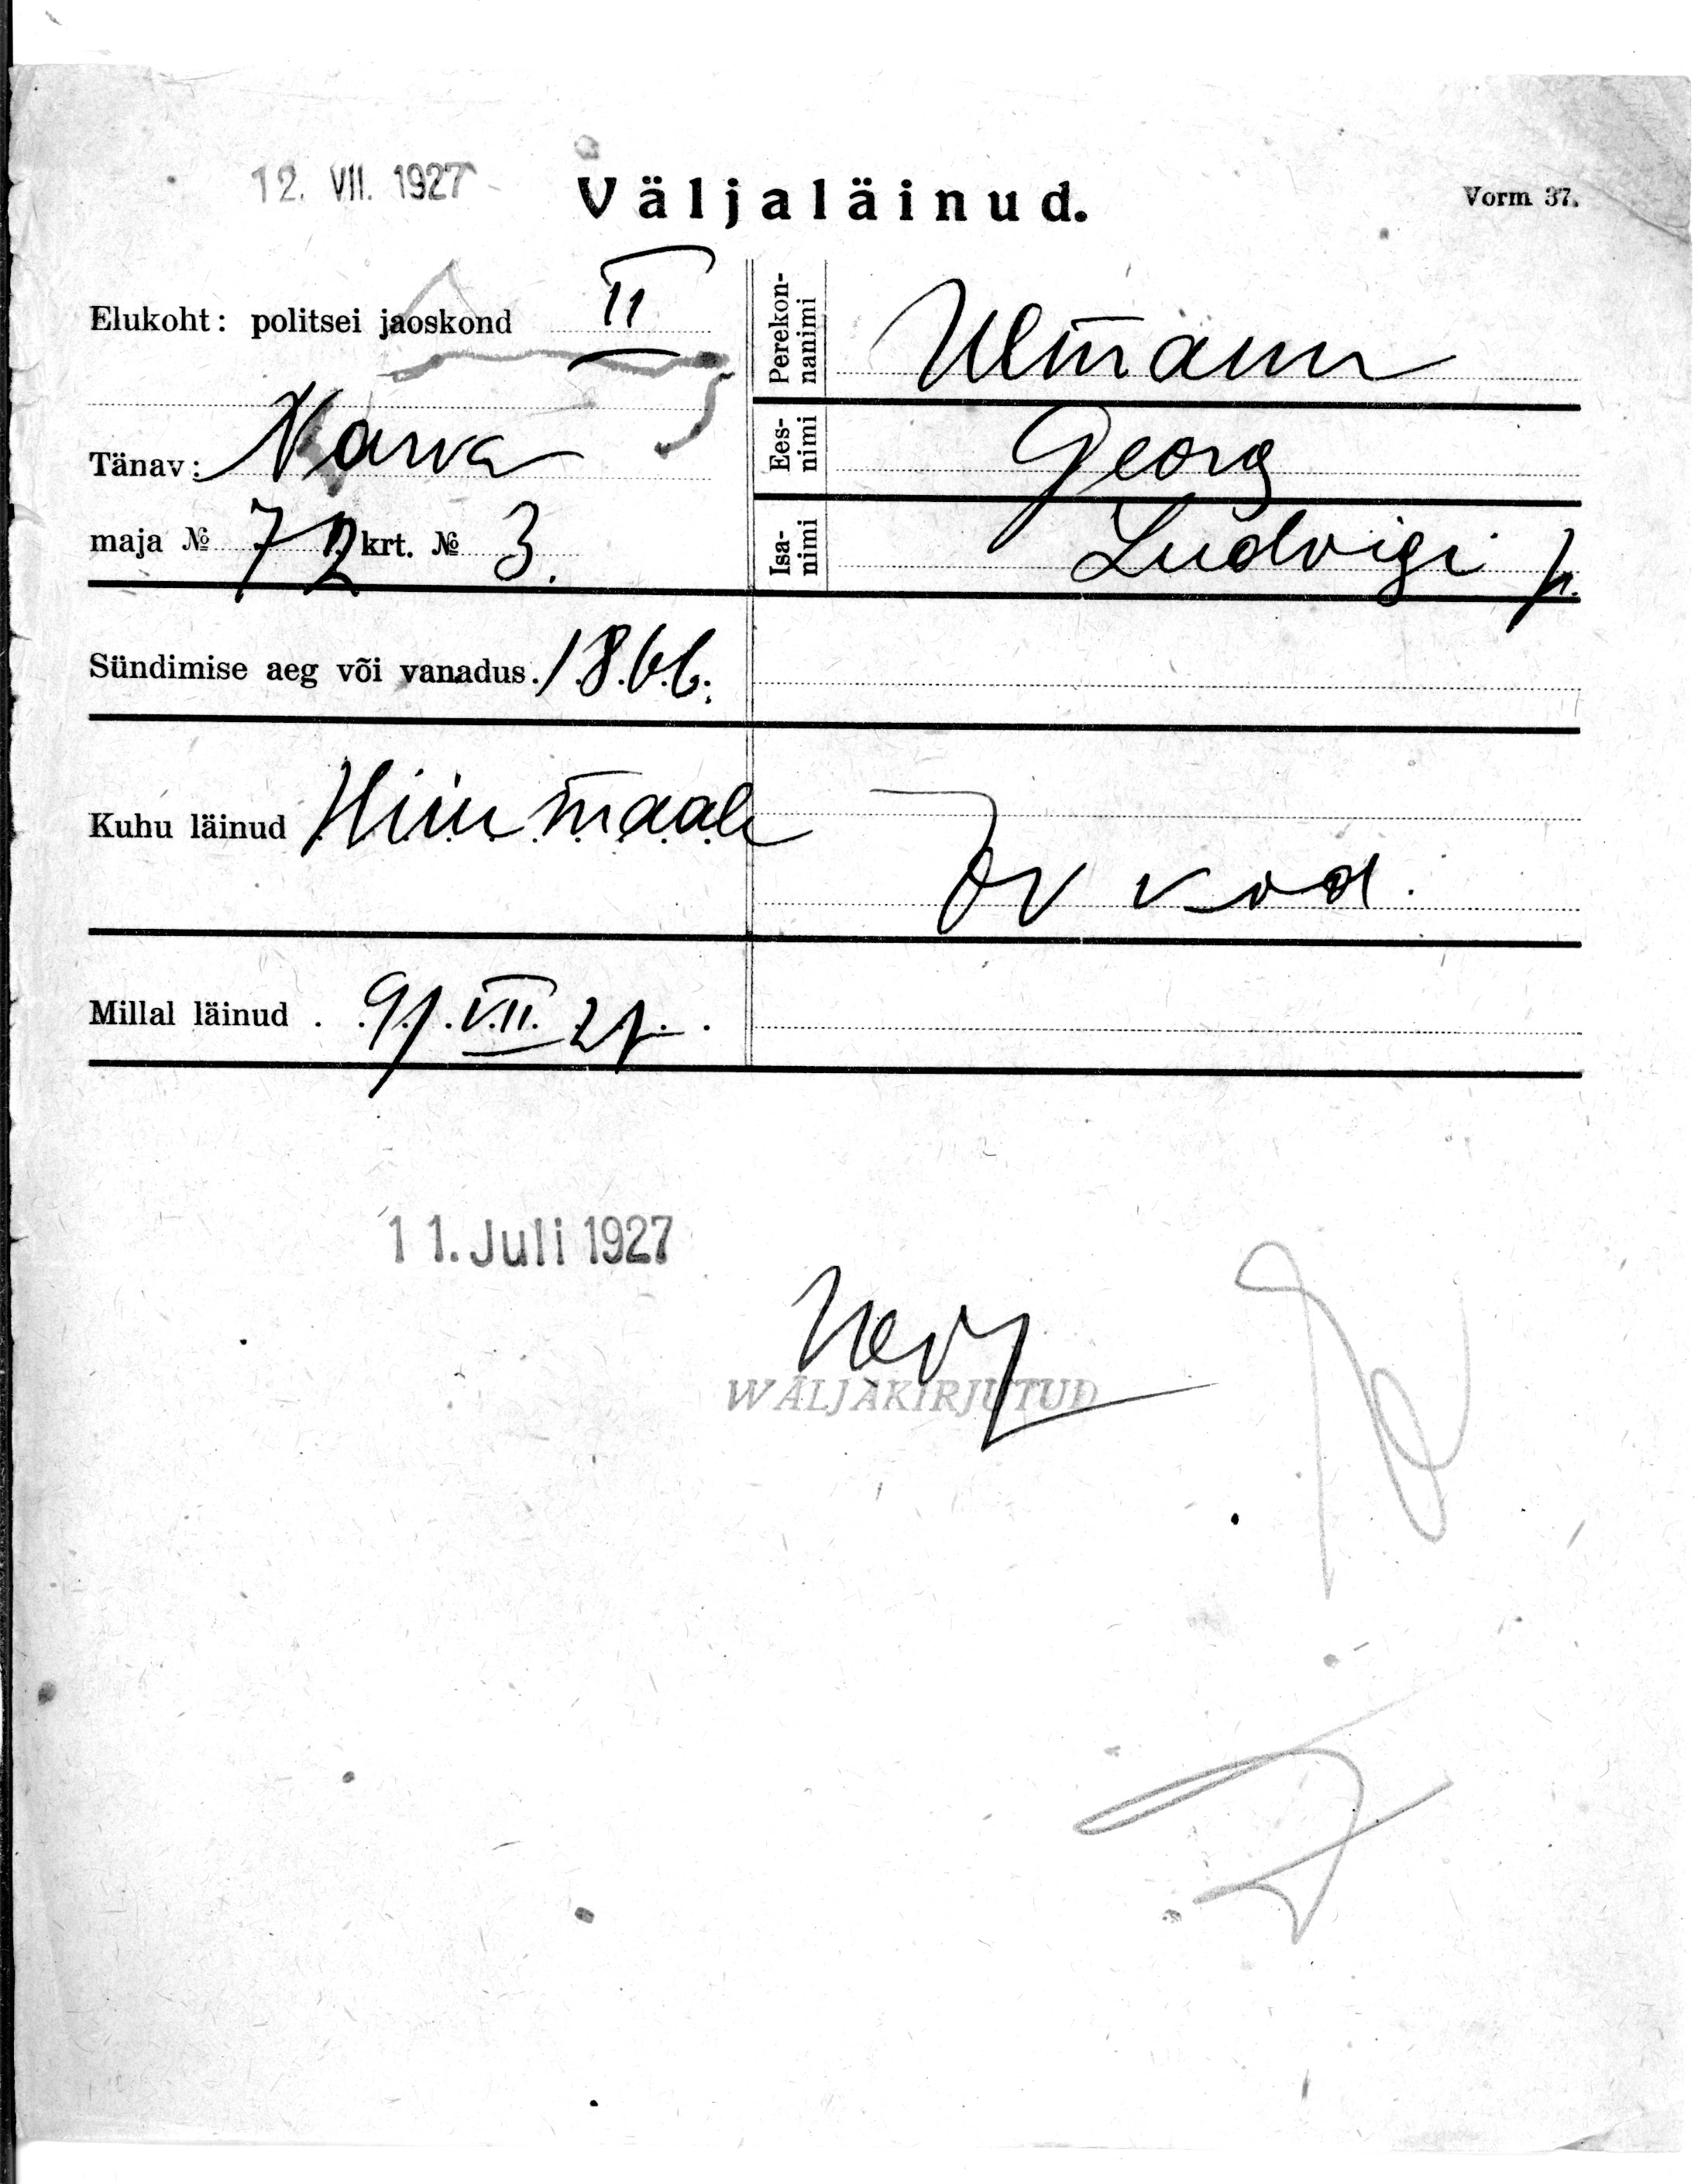 12. VII. 1927
Väljaläinud.
Vorm 37.
Elukoht: politsei jaoskond II
Tänav: Narva
maja № 72 krt. № 3.
Perekonnanimi Ulmann
Eesnimi Georg
Isanimi Ludvigi p.
Sündimise aeg või vanadus 1866.
Kuhu läinud Hiiumaale
Millal läinud 9/VII 27.
11. Juli 1927
WÄLJAKIRJUTUD